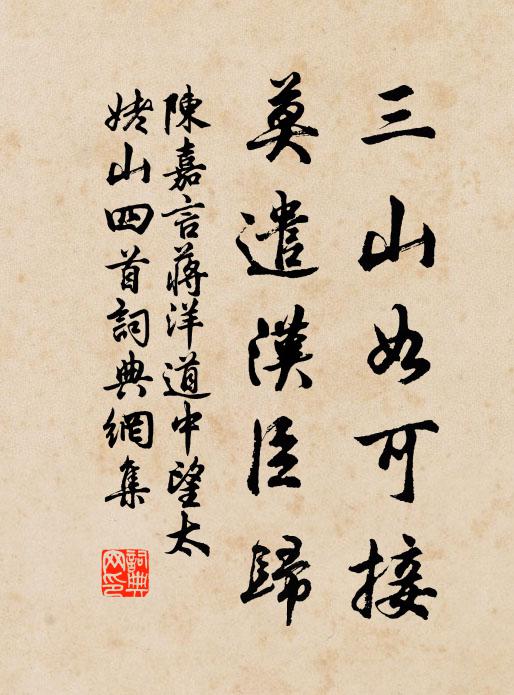 三山如可接
莫遣漢臣歸
陳嘉言蔣洋道中望太
姥山四首詞典網集
詞典
网印